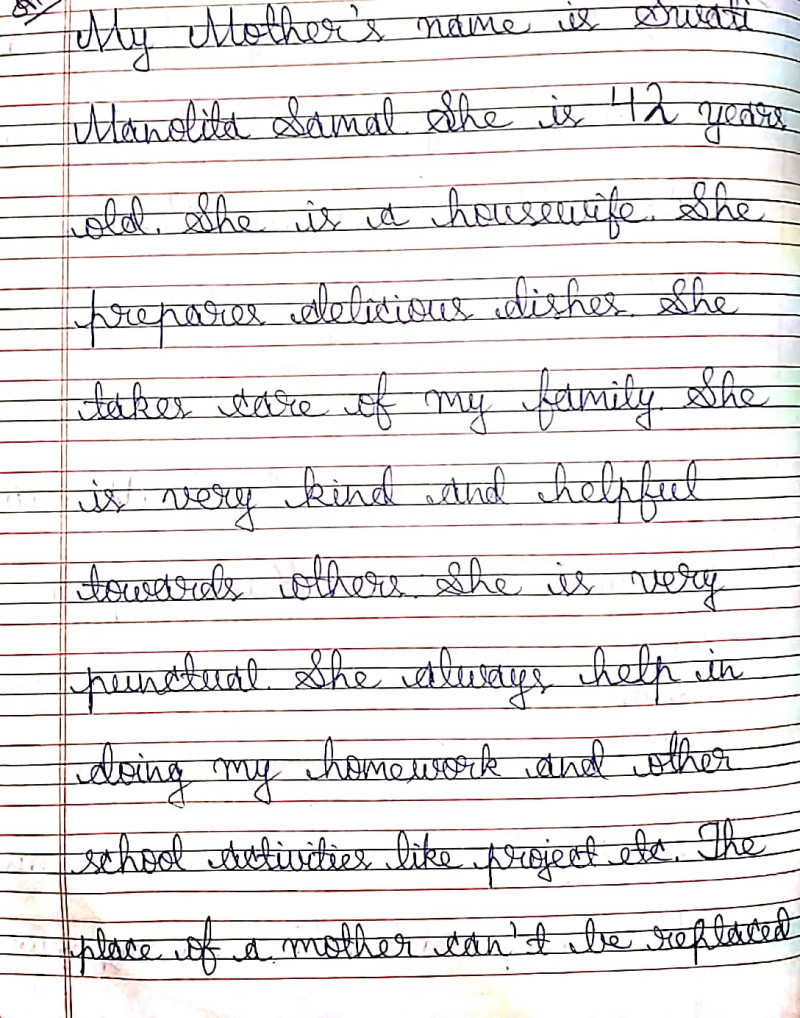 My Mother's name is Swati
Manolita Samal. She is 42 years
old. She is a housewife. She
prepares delicious dishes. She
takes care of my family. She
is very kind and helpful
towards others. She is very
punctual. She always help in
doing my homework and other
school activities like project etc. The
place of a mother can't be replaced